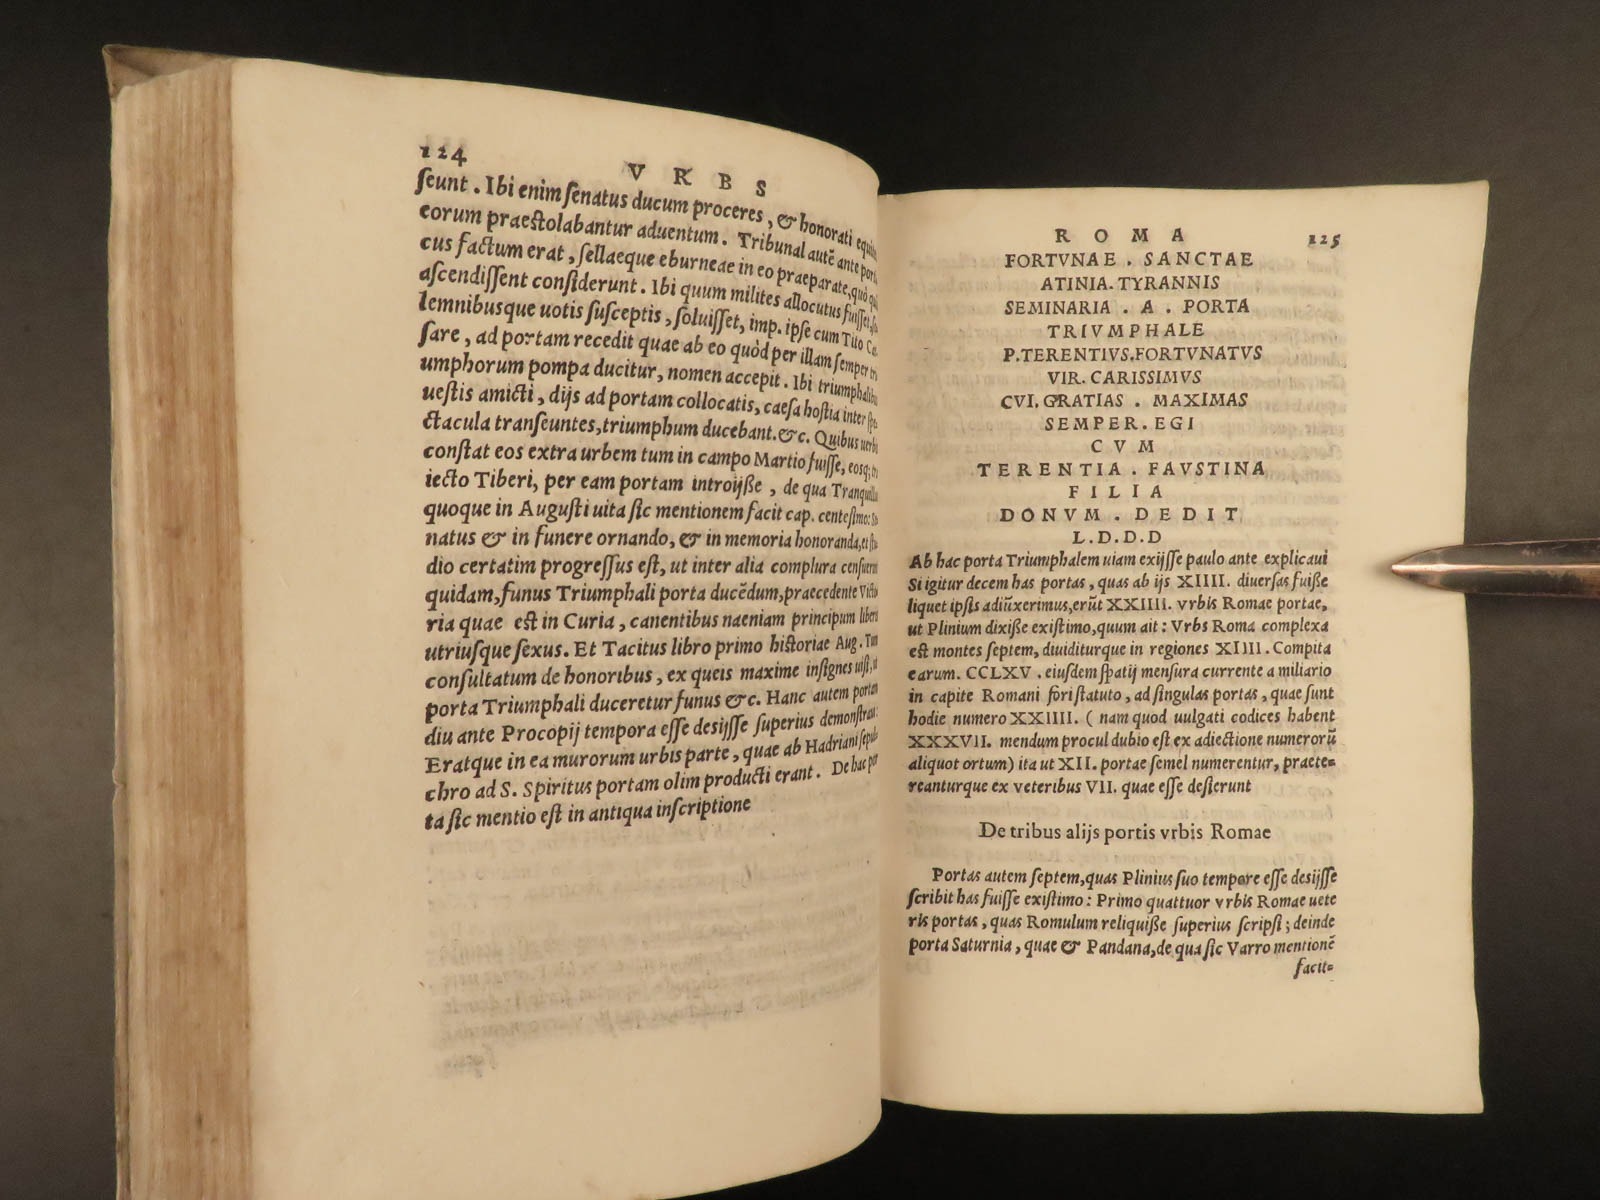 124
V R B S
ſeunt . Ibi enim ſenatus ducum proceres , & honorati
eorum praeſtolabantur aduentum . Tribunal autẽ ante
cus factum erat , ſellaeque eburneae in eo praeparate, quò
aſcendiſſent conſiderunt . Ibi quum milites allocutus fuiſſet,
lemnibusque uotis ſuſceptis , ſoluiſſet, imp. ipſe cum Tito
ſare , ad portam recedit quae ab eo quòd per illam ſemper
umphorum pompa ducitur, nomen accepit . Ibi
ueſtis amicti , dijs ad portam collocatis, caeſa hoſtia inter
ctacula tranſeuntes, triumphum ducebant. &c. Quibus
conſtat eos extra urbem tum in campo Martio fuiſſe, eosq;
iecto Tiberi, per eam portam introijſſe , de qua
quoque in Auguſti uita ſic mentionem facit cap. centeſimo:
natus & in funere ornando, & in memoria honoranda, et
dio certatim progreſſus eſt, ut inter alia complura
quidam, funus Triumphali porta ducẽdum, praecedente
ria quae eſt in Curia , canentibus naeniam principum
utriuſque ſexus. Et Tacitus libro primo hiſtoriae Aug.
conſultatum de honoribus , ex queis maxime inſignes
porta Triumphali duceretur funus &c. Hanc autem
diu ante Procopij tempora eſſe desijſſe ſuperius
Eratque in ea murorum urbis parte , quae ab Hadriani
chro ad S. Spiritus portam olim producti erant . De hac
ta ſic mentio eſt in antiqua inſcriptione
R O M A
125
FORTVNAE . SANCTAE
ATINIA. TYRANNIS
SEMINARIA . A . PORTA
TRIVMPHALE
P. TERENTIVS. FORTVNATVS
VIR. CARISSIMVS
CVI. GRATIAS . MAXIMAS
SEMPER . EGI
C V M
TERENTIA . FAVSTINA
F I L I A
DONVM . DEDIT
L. D. D. D
Ab hac porta Triumphalem uiam exijſſe paulo ante explicaui
Si igitur decem has portas , quas ab ijs XIIII. diuerſas fuiſſe
liquet ipſis adiũxerimus, erũt XXIIII. vrbis Romae portae,
ut Plinium dixiſſe exiſtimo, quum ait : Vrbs Roma complexa
eſt montes ſeptem, diuiditurque in regiones XIIII. Compita
earum. CCLXV . eiuſdem ſpatij menſura currente a miliario
in capite Romani fori ſtatuto , ad ſingulas portas , quae ſunt
hodie numero XXIIII. ( nam quod uulgati codices habent
XXXVII. mendum procul dubio eſt ex adiectione numerorũ
aliquot ortum) ita ut XII. portae ſemel numerentur, praete=
reanturque ex veteribus VII. quae eſſe deſierunt
De tribus alijs portis vrbis Romae
Portas autem ſeptem, quas Plinius ſuo tempore eſſe desijſſe
ſcribit has fuiſſe exiſtimo : Primo quattuor vrbis Romae uete
ris portas , quas Romulum reliquiſſe ſuperius ſcripſi ; deinde
porta Saturnia , quae & Pandana, de qua ſic Varro mentionẽ
facit=